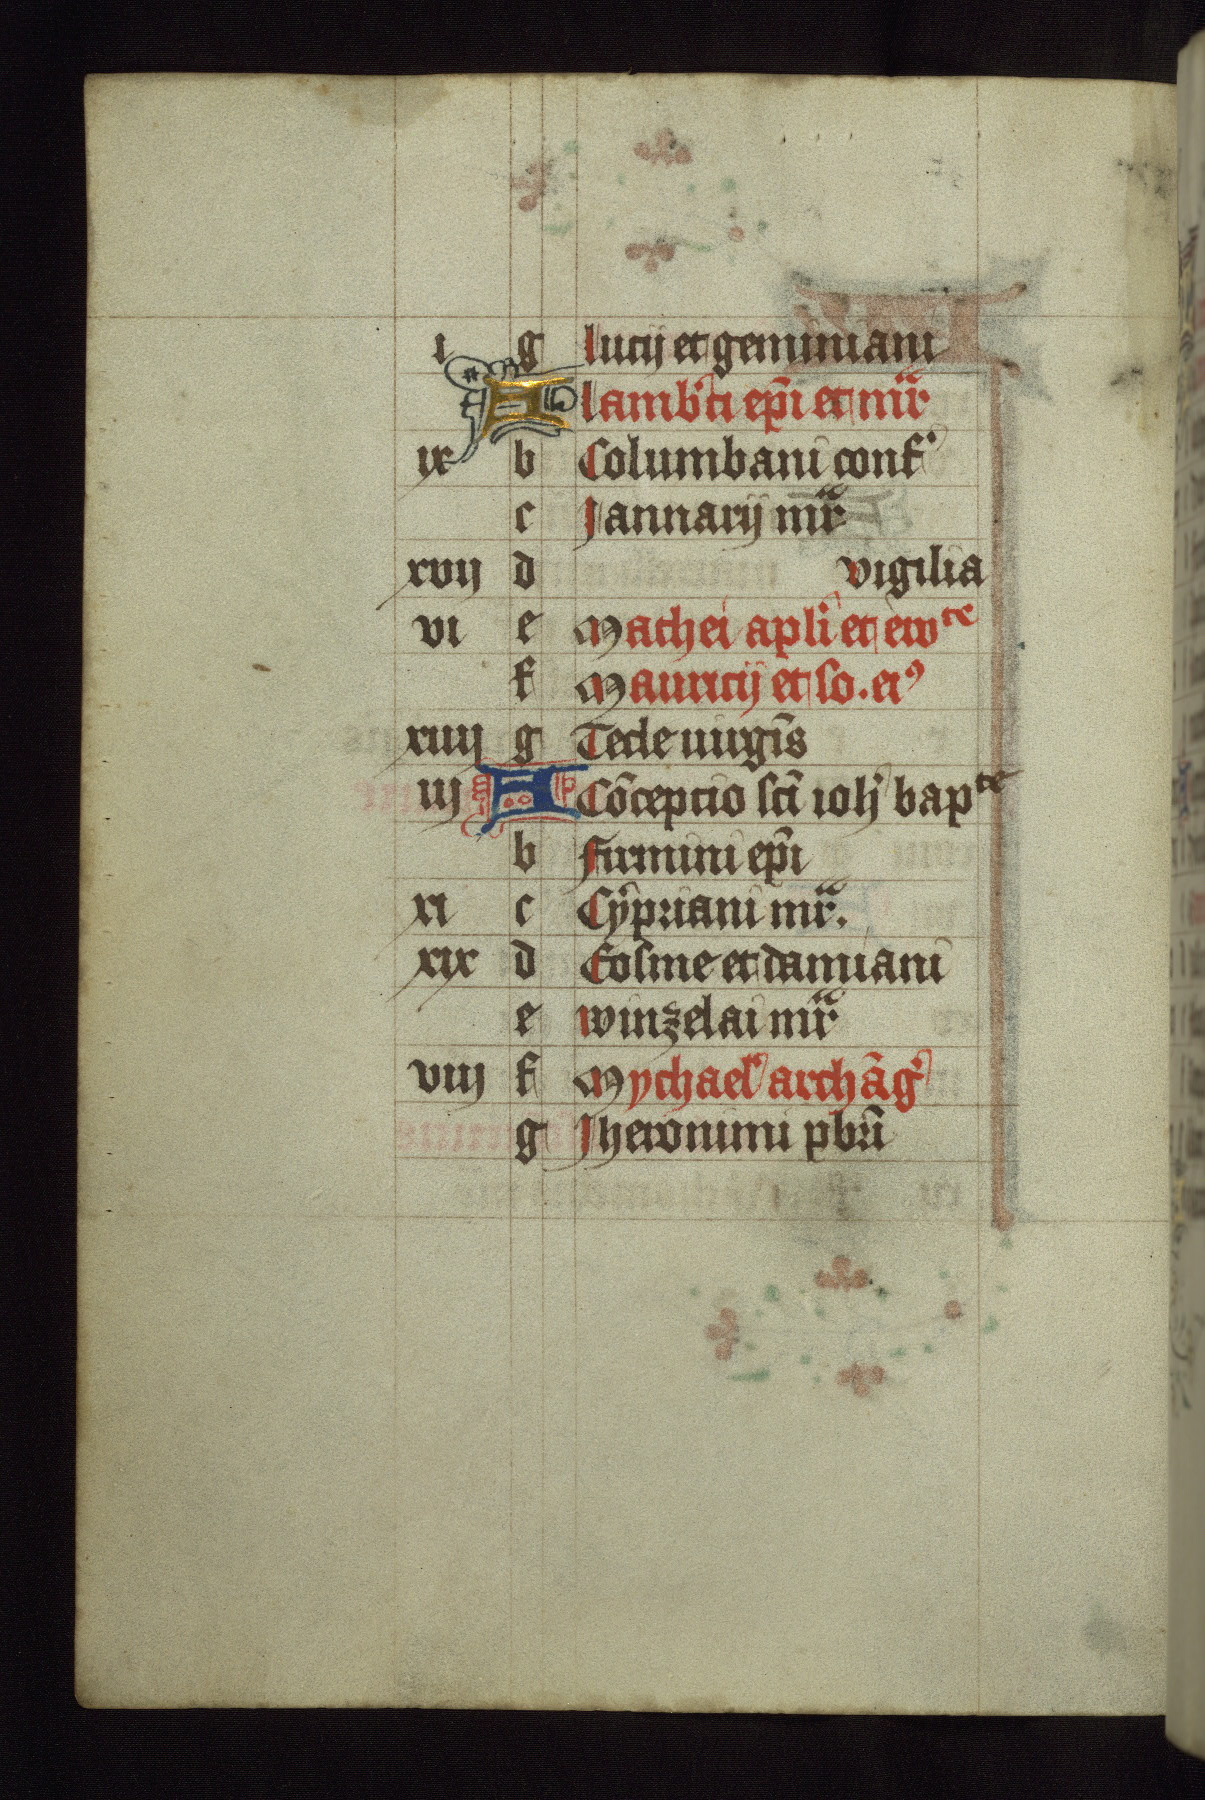 i g lucij et geminiani
A lamb'ti ep̄i et mr̄
ix b Columbani conf'
c Jannarij mr̄
xvij d vigilia
vi e Mathei apl'i et ew^te
f Mauricij et so. ei⁹
xiiij g Tecle uirgīs
iij A Cōceptio sct̄i ioh' bap^te
b firmini ep̄i
xi c Cypriani mr̄.
xix d Cosme et damiani
e winzelai mr̄
viij f Mychael' archāg'
g Jheronimi pbr̄i